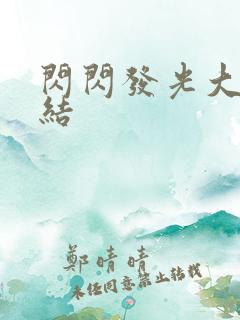 閃閃發光大
結
鄭晴晴
未經同意禁止轉載